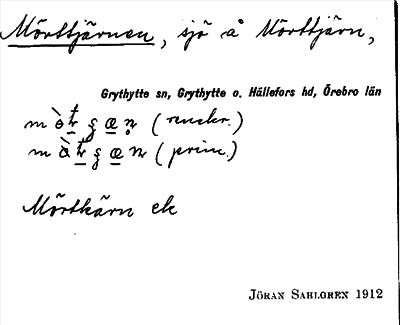 Mörttjärnen, sjö å Mörttjärn,
Grythytte sn, Grythytte o. Hällefors hd, Örebro län
(renskr.)
(prim.)
Mörtkärn ek
JÖRAN SAHLGREN 1912